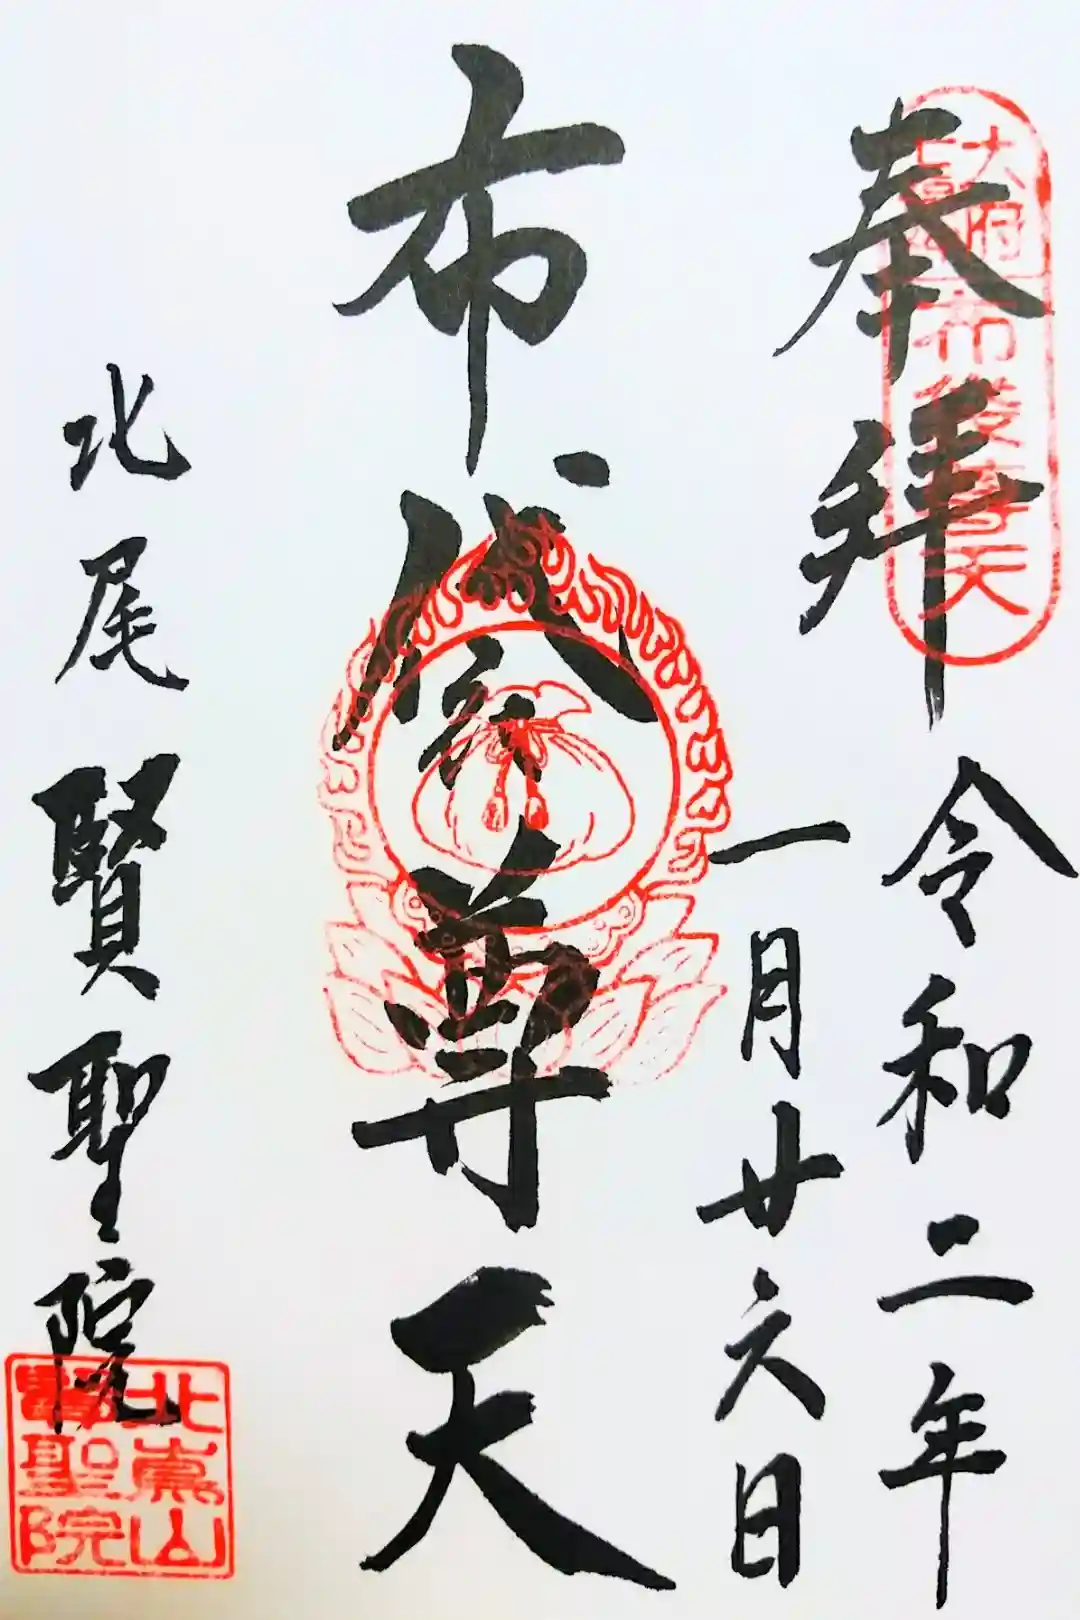 奉拝
令和二年
一月廿六日
布袋尊天
北尾
賢聖院
大府七福神
布袋尊天
北嵩山
賢聖院